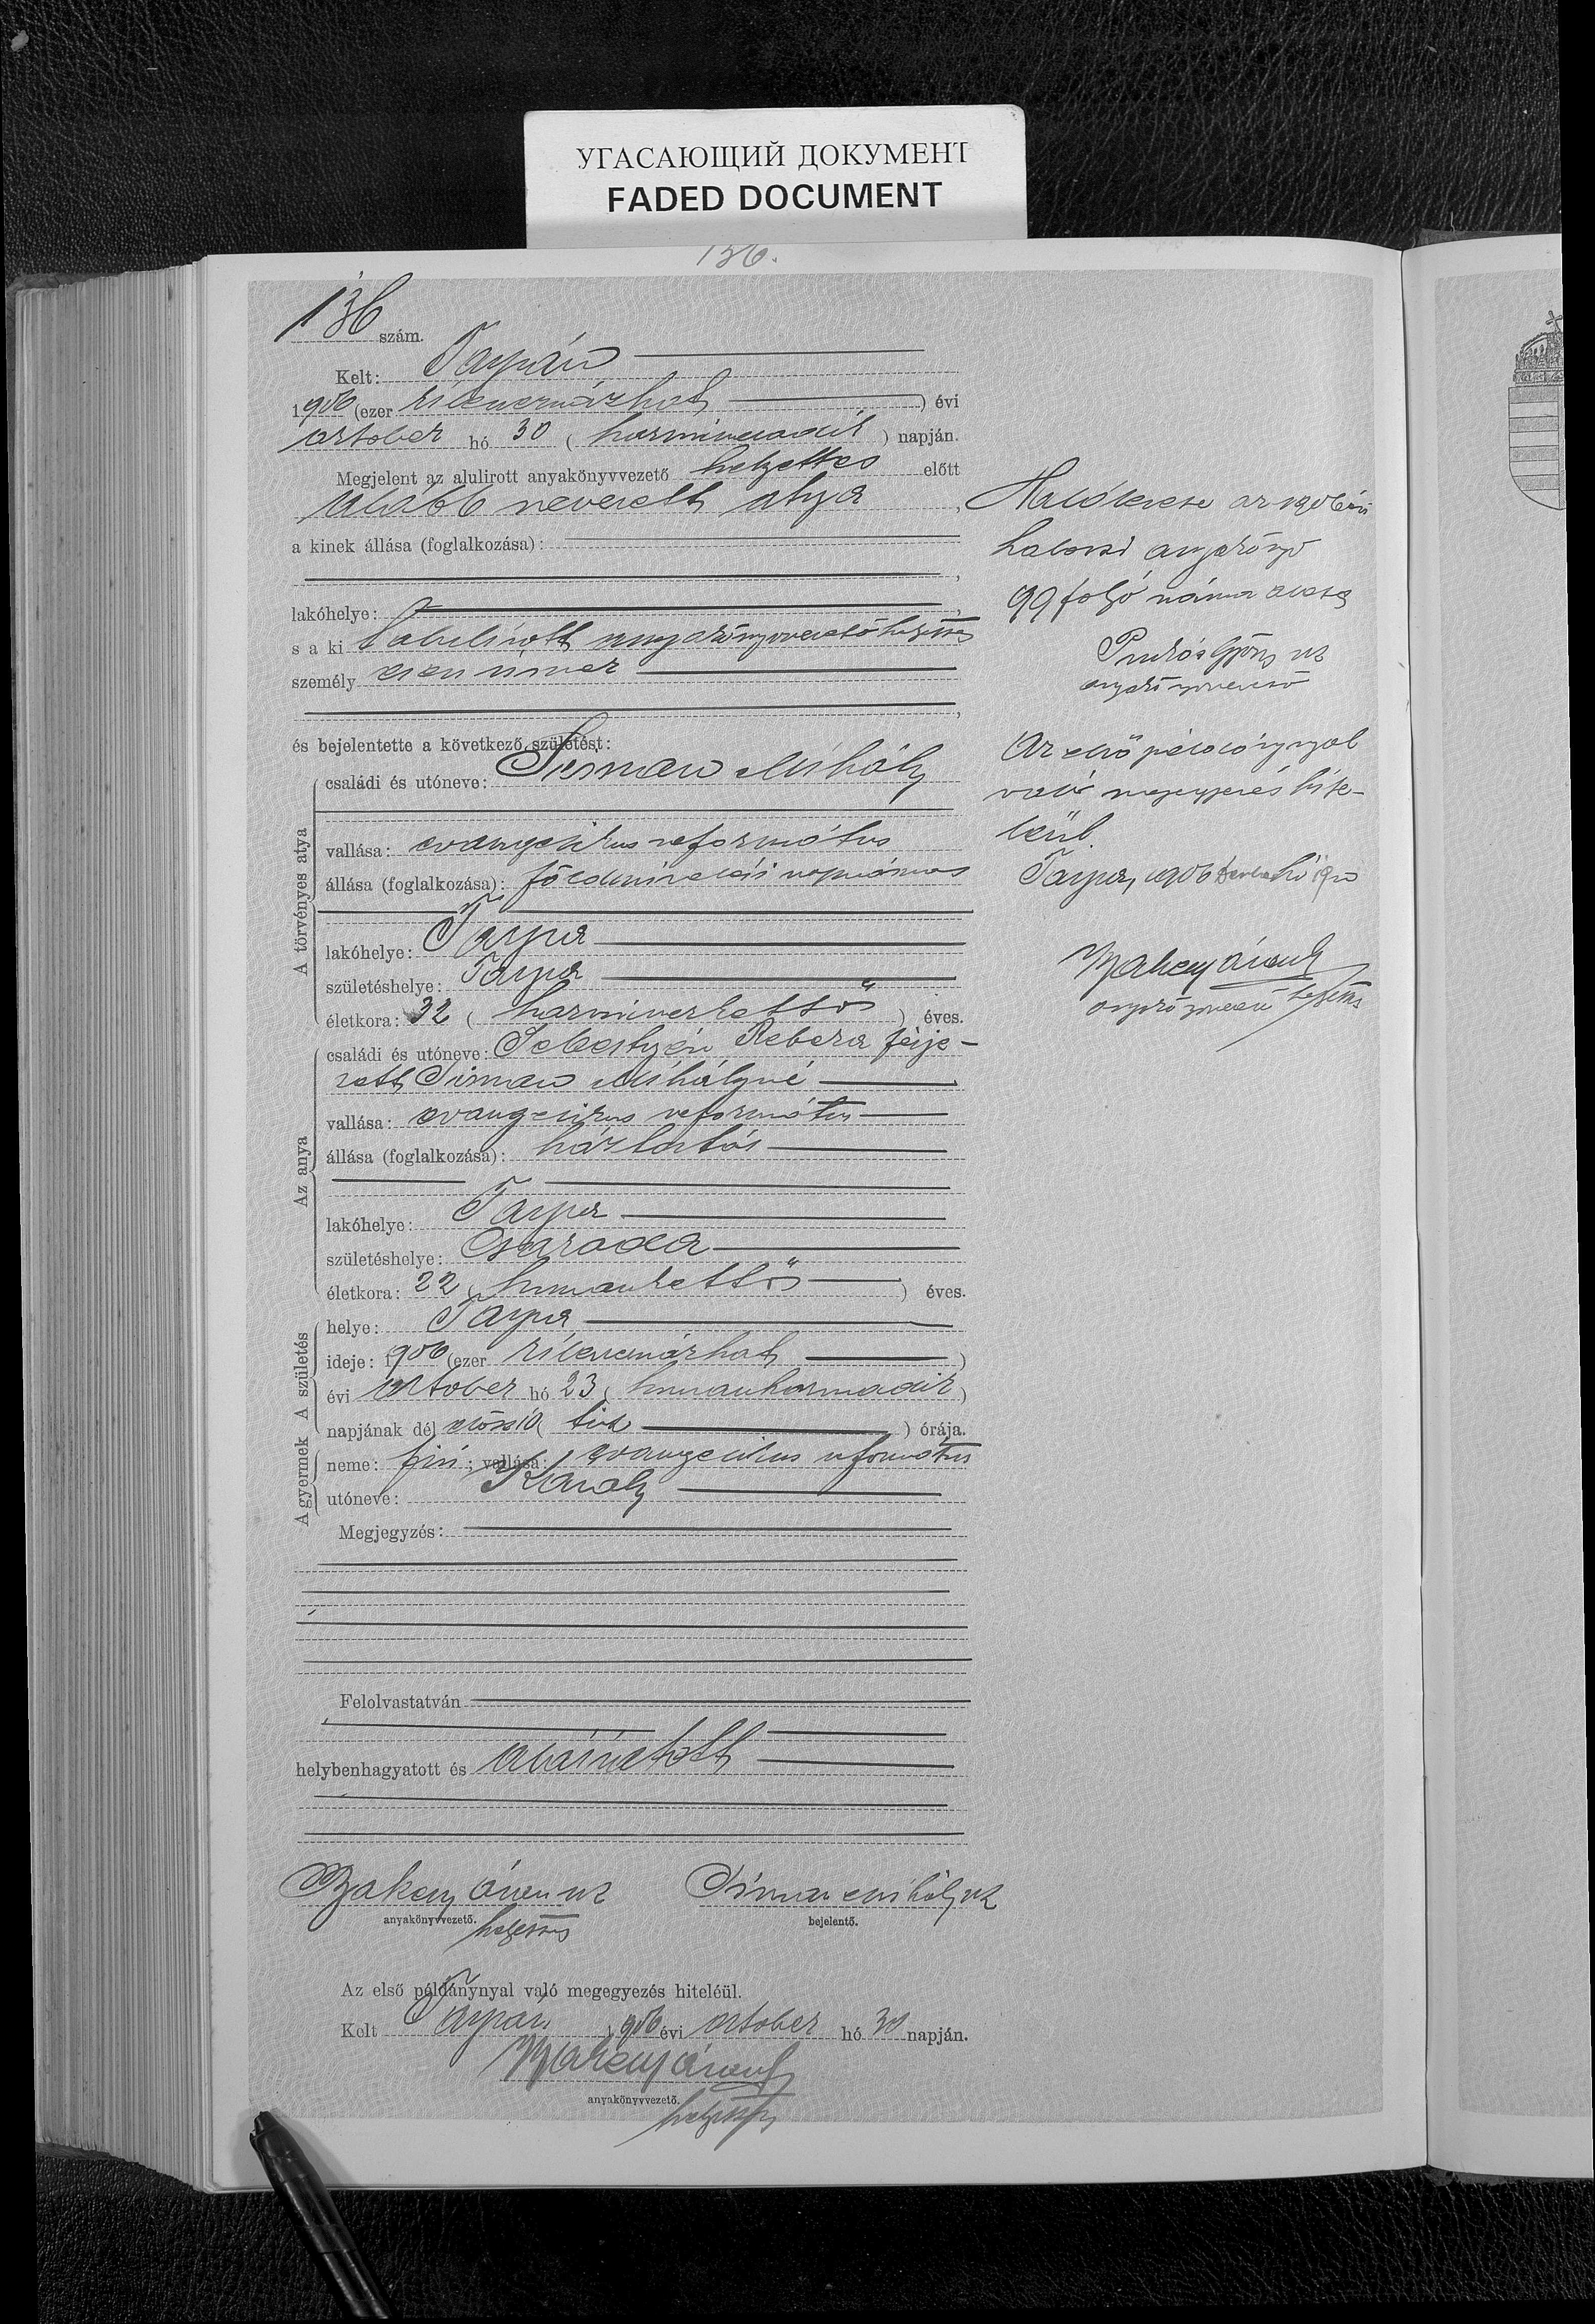 УГАСАЮЩИЙ ДОКУМЕНТ
FADED DOCUMENT
136.
136 szám.
Kelt: Tarpán
1906 (ezer kilencszázhat) évi
october hó 30 (harminczadik) napján.
Megjelent az alulirott anyakönyvvezető helyettes előtt
alább nevezett atya,
a kinek állása (foglalkozása):
lakóhelye:
s a ki alulirott anyakönyvvezető helyettes
személy esen ismer
és bejelentette a következő születést:
A törvényes atya
családi és utóneve: Simon Mihály
vallása: evangelikus református
állása (foglalkozása): földmivelési napszámos
lakóhelye: Tarpa
születéshelye: Tarpa
életkora: 32 (harminczkettős) éves.
Az anya
családi és utóneve: Sebestyén Rebeka férje-
zett Simon Mihályné
vallása: evangelikus református
állása (foglalkozása): háztartás
lakóhelye: Tarpa
születéshelye: Csaroda
életkora: 22 (huszonkettős) éves.
A születés
helye: Tarpa
ideje: 1906 (ezer kilencszázhat)
évi october hó 23 (huszonharmadik)
napjának dél előtti 10 (tiz) órája.
A gyermek
neme: fiú; vallása: evangelikus református
utóneve: Károly
Megjegyzés:
Felolvastatván
helybenhagyatott és aláiratott
anyakönyvvezető. helyettes
Simon Mihály sk
bejelentő.
Az első példánynyal való megegyezés hiteléül.
Kelt Tarpán, 1906 évi october hó 30 napján.
anyakönyvvezető.
helyettes
az 1906 évi
halotti anyakönyv
99 folyó száma alatt
anyakönyvvezető
Az első példánynyal
való megegyezés hite-
léül.
Tarpa, 1906 hó
anyakönyvvezető helyettes